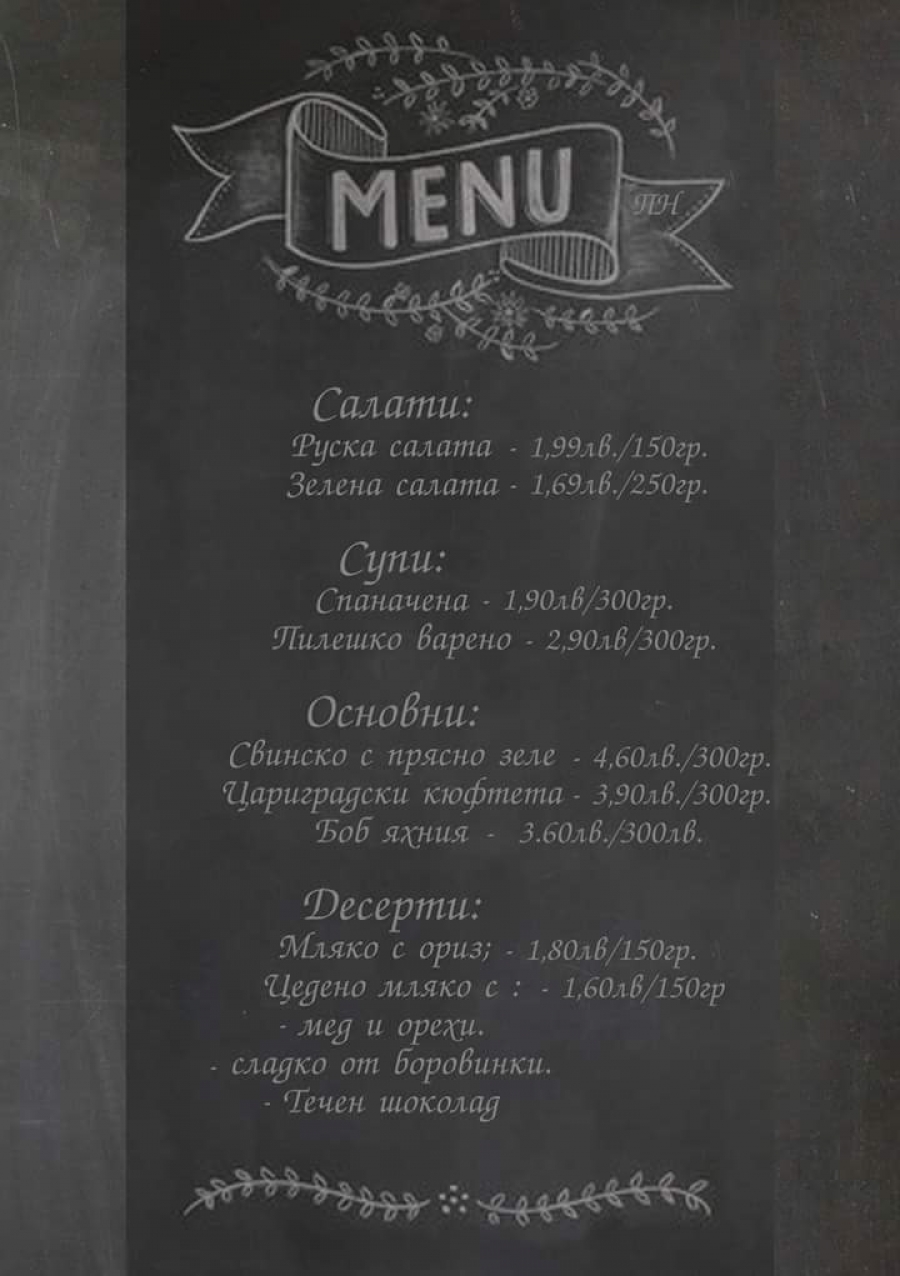 MENU
ПН
Салати:
Руска салата - 1,99лв./150гр.
Зелена салата - 1,69лв./250гр.
Супи:
Спаначена - 1,90лв/300гр.
Пилешко варено - 2,90лв/300гр.
Основни:
Свинско с прясно зеле - 4,60лв./300гр.
Цариградски кюфтета - 3,90лв./300гр.
Боб яхния - 3.60лв./300лв.
Десерти:
Мляко с ориз; - 1,80лв/150гр.
Цедено мляко с : - 1,60лв/150гр
- мед и орехи.
- сладко от боровинки.
- Течен шоколад